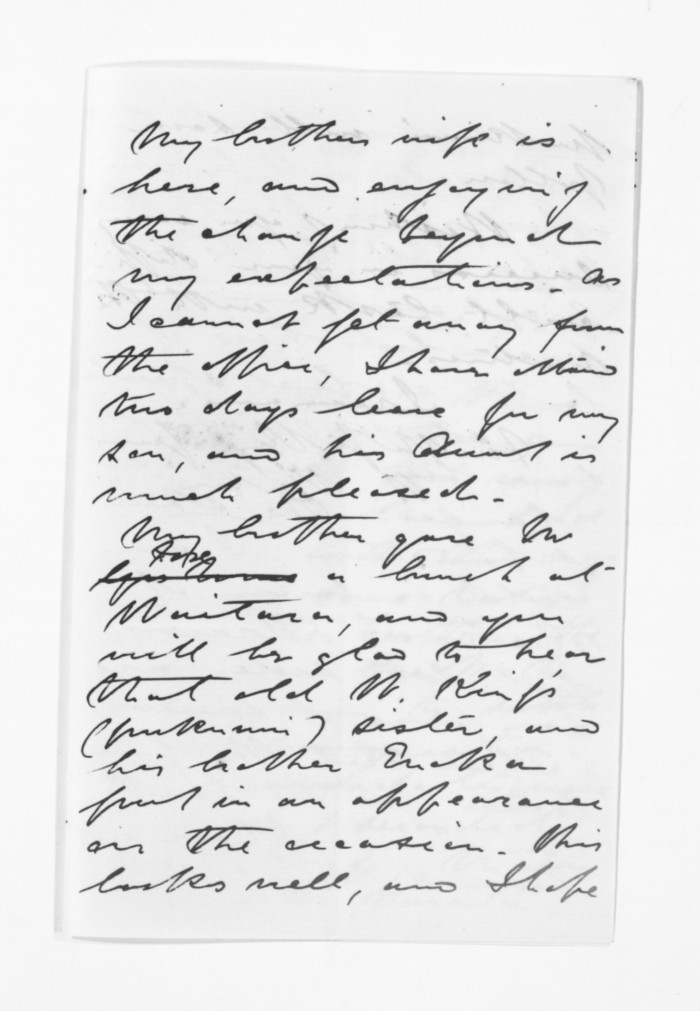 My brothers wife is
here, and enjoying
the change beyond
my expectations. As
I cannot get away from
the office, I have obtained
two days leave for my
son, and his Aunt is
much pleased.
My brother gave Mr
a lunch at
Waitara, and you
will be glad to hear
that old W. King's
sister, and
his brother Eneka
put in an appearance
on the occasion. This
looks well, and I hope